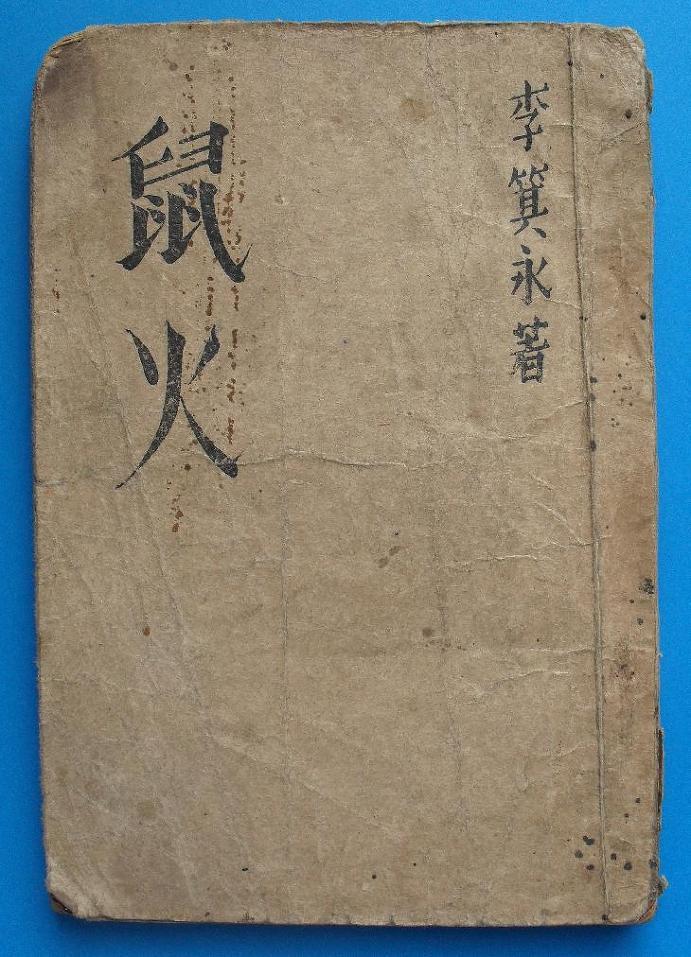 李箕永著
鼠火